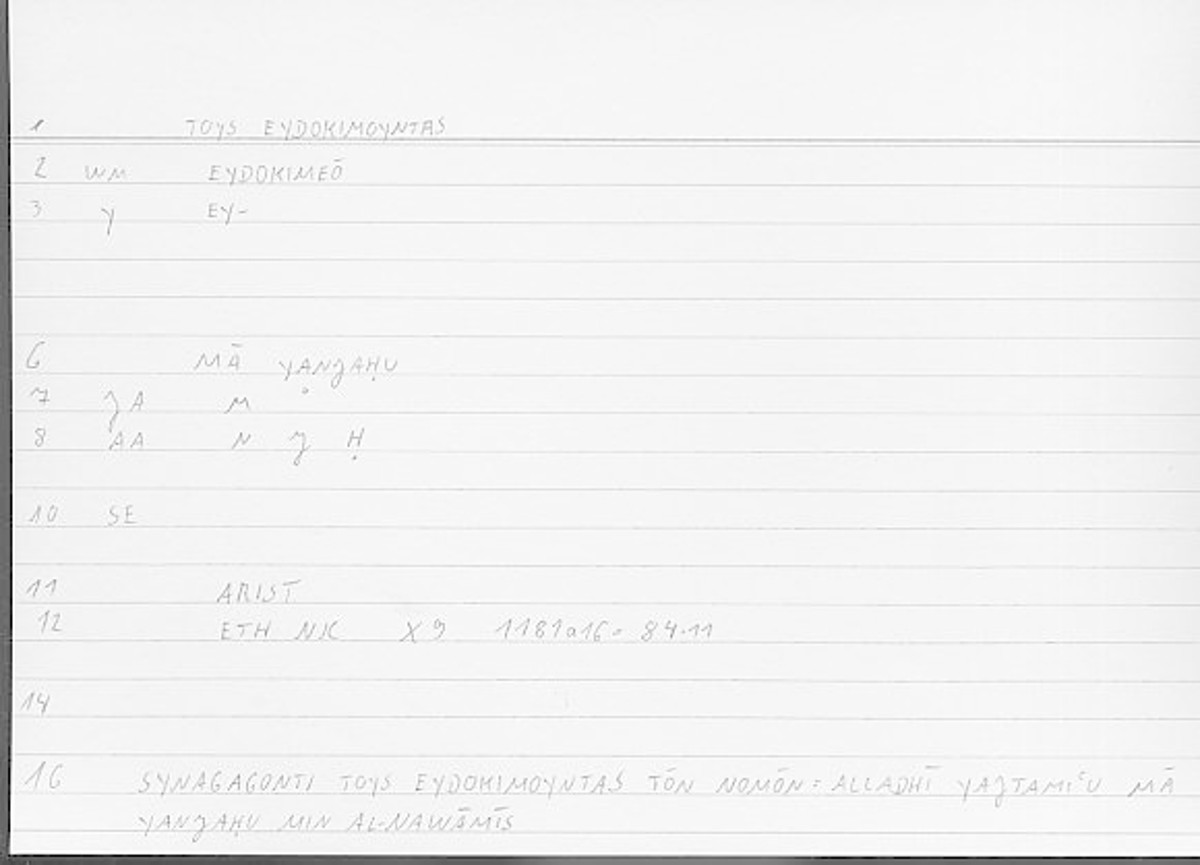 1 TOYS EYDOKIMOYNTAS
2 WM EYDOKIMEŌ
3 Y EY-
6 MĀ YANJAḤU
7 JA M
8 AA N J Ḥ
10 SE
11 ARIST
12 ETH NIC X 9 1181a16 = 84.11
14
16 SYNAGAGONTI TOYS EYDOKIMOYNTAS TŌN NOMŌN = ALLADHĪ YAJTAMIʿU MĀ
YANJAḤU MIN AL-NAWĀMĪS